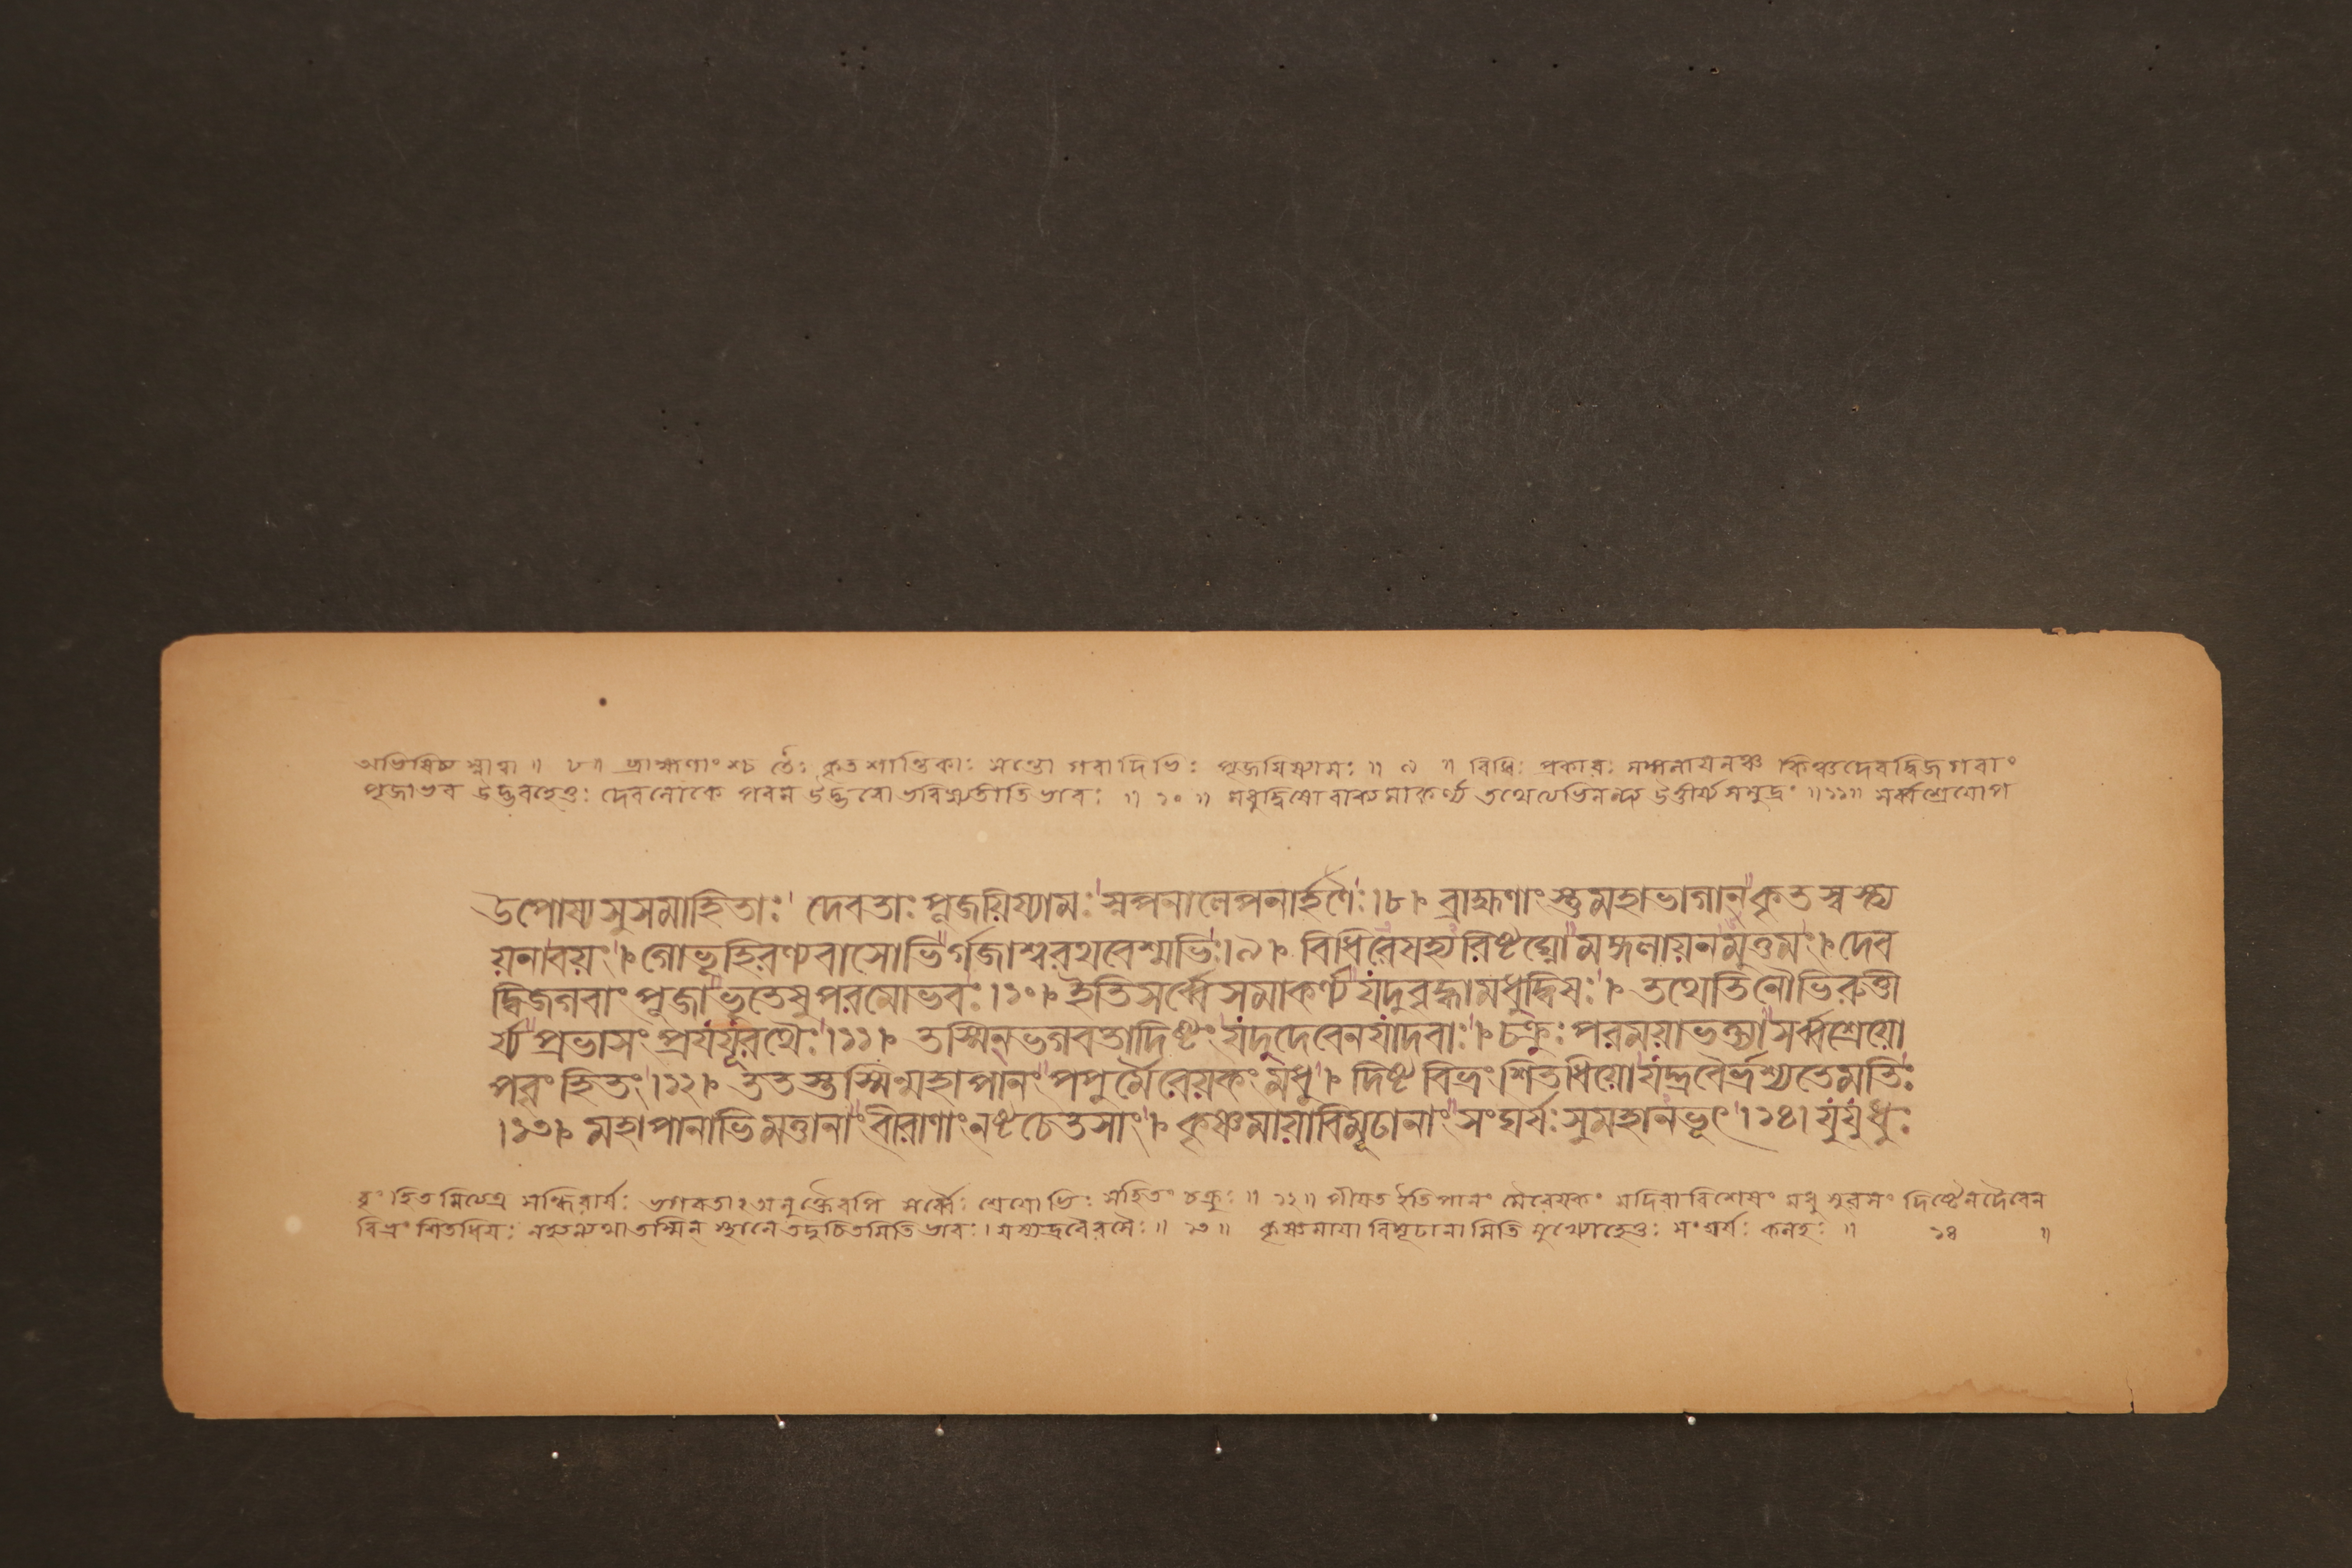 অভিষিচ্য স্নাত্বা ॥ ৮॥ ব্রাহ্মণাংশ্চ তৈঃ কৃতশান্তিকাঃ সন্তো গবাদিভিঃ পূজয়িষ্যামঃ ॥ ৯ ॥ বিধিঃ প্রকারঃ মঙ্গলায়নঞ্চ কিঞ্চদেবদ্বিজগবাং
পূজাভব উদ্ভবহেতুঃ দেবলোকে পরম উদ্ভবো ভবিষ্যতীতিভাবঃ ॥ ১০ ॥ মধুদ্বিষো বাক্যমাকর্ণ্য তথেত্যভিনন্দ্য উত্তীর্য্যসমুদ্রং ॥১১॥ সর্ব্বশ্রেয়োপ
উপোষ্য সুসমাহিতাঃ দেবতাঃ পূজয়িষ্যামঃ স্নপনালেপনার্হণৈঃ ।৮। ব্রাহ্মণাংস্তুমহাভাগান্ কৃতস্বস্ত্য
য়নাবয়ং । গোভূহিরণ্যবাসোভির্গজাশ্বরথবেশ্মভিঃ ।৯। বিধিরেষহ্যরিষ্টঘ্নো মঙ্গলায়নমুত্তমং । দেব
দ্বিজগবাং পূজা ভূতেষুপরমোভবঃ ।১০। ইতিসর্ব্বেসমাকর্ণ্য যদুবৃদ্ধামধুদ্বিষঃ । তথেতিনৌভিরুত্তী
র্য্য প্রভাসং প্রযযূরথৈঃ ।১১। তস্মিন্ভগবতাদিষ্টং যদুদেবেনযাদবাঃ । চক্রুঃ পরময়াভক্ত্যা সর্ব্বশ্রেয়ো
পবৃংহিতং ।১২। ততস্তস্মিন্মহাপানং পপুর্মৈরেয়কং মধু । দিষ্টবিভ্রংশিতধিয়ো যদ্দ্রবৈর্ভ্রশ্যতেমতিঃ
।১৩। মহাপানাভিমত্তানাং বীরাণাং নষ্টচেতসাং । কৃষ্ণমায়াবিমূঢানাং সংঘর্ষঃ সুমহানভূৎ ।১৪। যুযুধুঃ
বৃংহিতমিত্যত্র সন্ধিরার্ষঃ ভগবতা অনুক্তৈরপি সর্ব্বৈঃ শ্রেয়োভিঃ সহিতং চক্রুঃ ॥ ১২॥ পীয়ত ইতিপানং মৈরেয়কং মদিরাবিশেষং মধু সুরসং দিষ্টেনদৈবেন
বিভ্রংশিতধিয়ঃ তস্মিন্ স্থানে তদুচিতমিতিভাবঃ । ॥ ১৩ ॥ কৃষ্ণমায়াবিমূঢানামিতি মুখ্যোহেতুঃ সংঘর্ষঃ কলহঃ ॥ ১৪ ॥